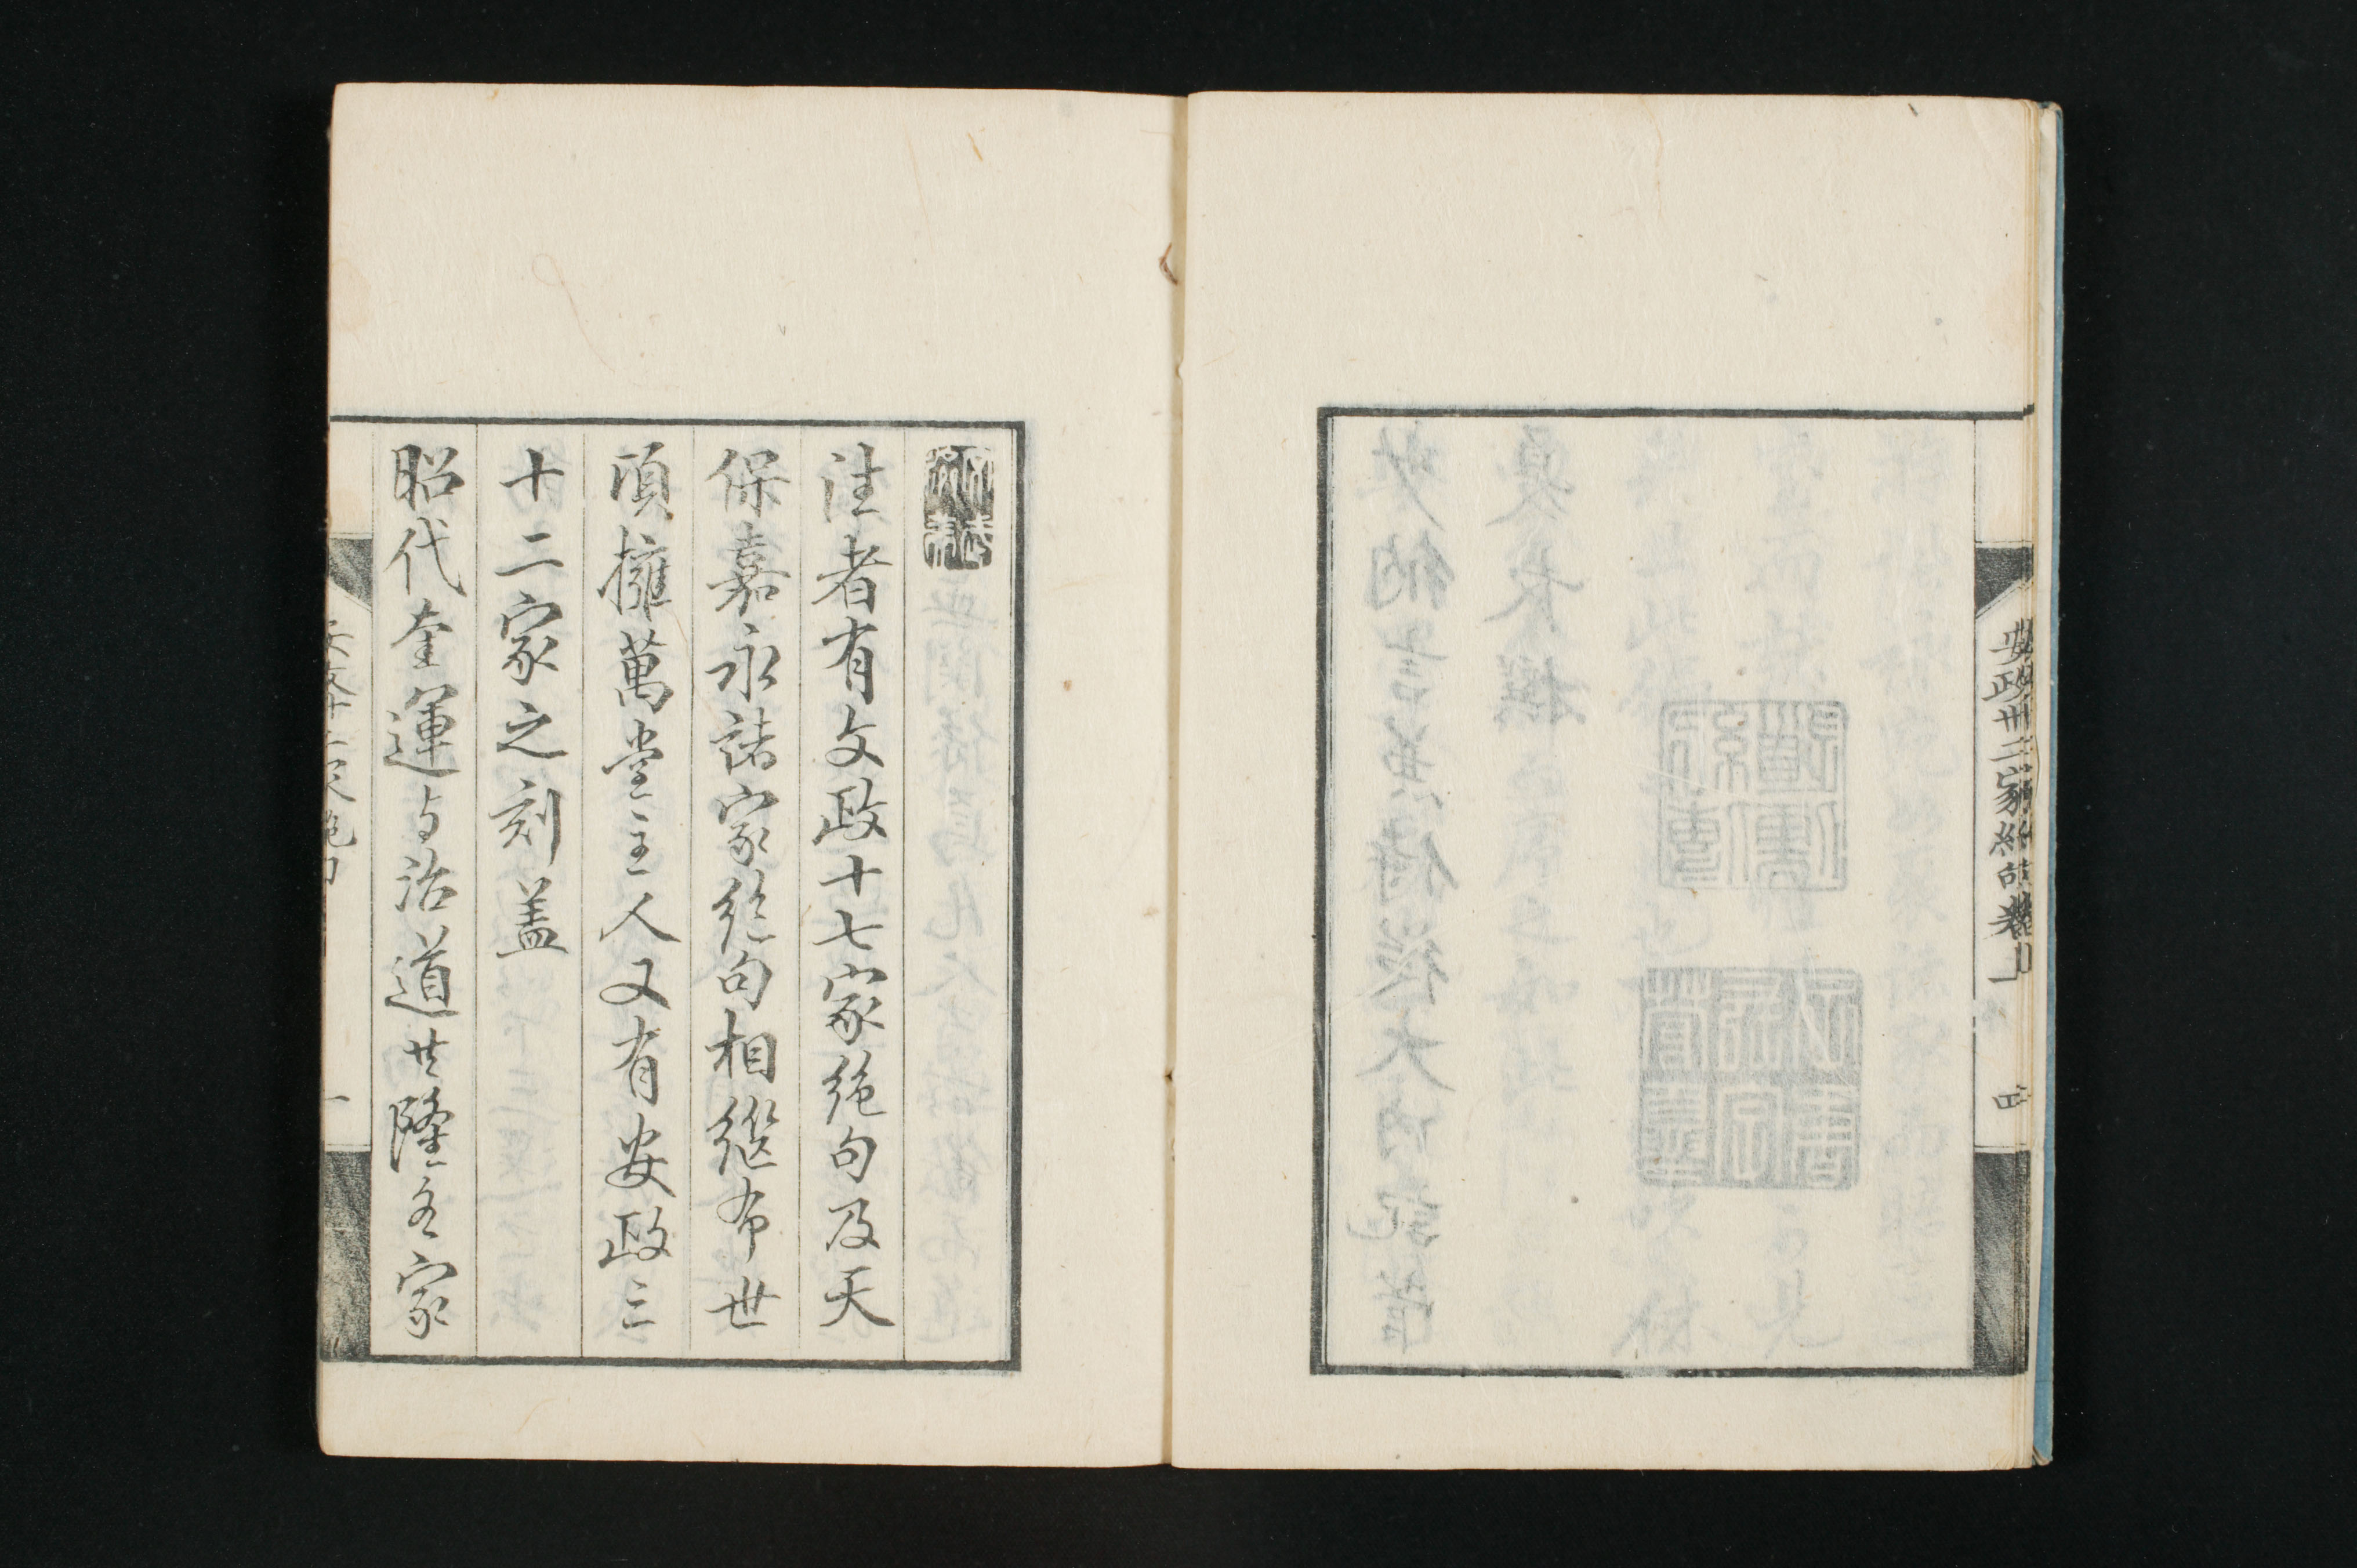 安政卅二家絶句卷上
四
往者有文政十七家絶句及天
保嘉永諸家絶句相繼布世
頃擁萬堂主人又有安政三
十二家之刻蓋
昭代奎運与治道共隆名家
一